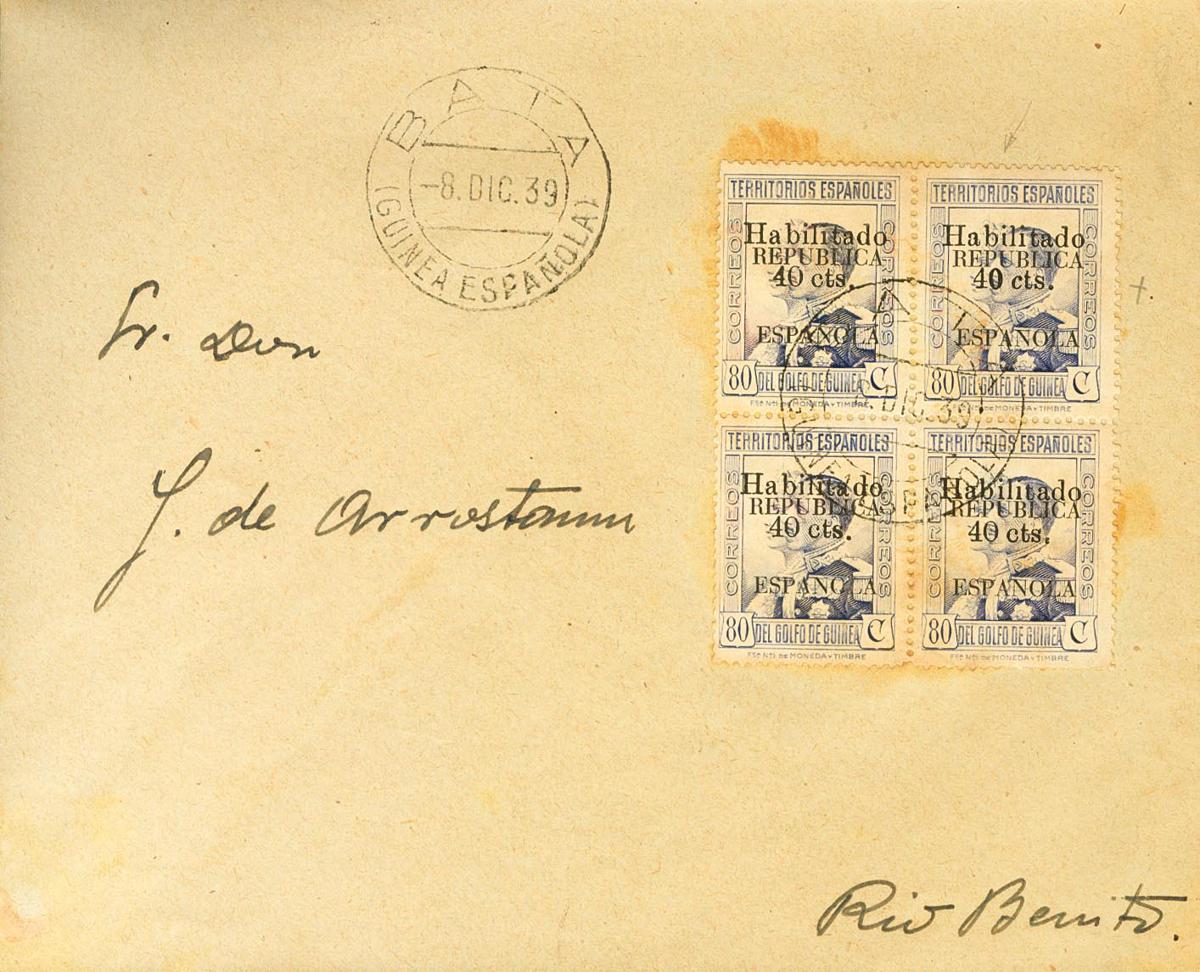 BATA
-8.DIC.39
(GUINEA ESPAÑOLA)
Sr. Don
J. de
Rio Benito.
TERRITORIOS ESPAÑOLES
CORREOS
CORREOS
Habilitado
REPUBLICA
40 cts.
ESPAÑOLA
80 DEL GOLFO DE GUINEA C
FCA NAL DE MONEDA Y TIMBRE
TERRITORIOS ESPAÑOLES
CORREOS
CORREOS
Habilitado
REPUBLICA
40 cts.
ESPAÑOLA
80 DEL GOLFO DE GUINEA C
DE MONEDA Y TIMBRE
TERRITORIOS ESPAÑOLES
CORREOS
CORREOS
Habilitado
REPUBLICA
40 cts.
ESPAÑOLA
80 DEL GOLFO DE GUINEA C
FCA NAL DE MONEDA Y TIMBRE
TERRITORIOS ESPAÑOLES
CORREOS
CORREOS
Habilitado
REPUBLICA
40 cts.
ESPAÑOLA
80 DEL GOLFO DE GUINEA C
FCA NAL DE MONEDA Y TIMBRE
DIC.39